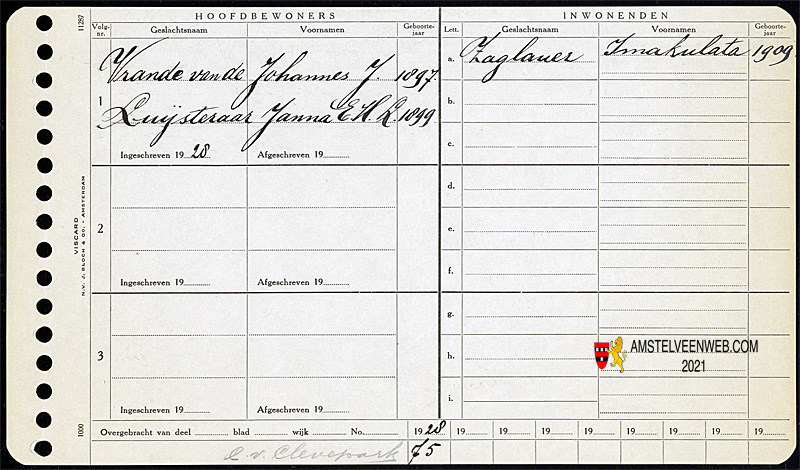 HOOFDBEWONERS
INWONENDEN
11287
Volg-nr.
Geslachtsnaam
Voornamen
Geboorte-jaar
Lett.
Geslachtsnaam
Voornamen
Geboorte-jaar
1
Vrande van de Johannes J. 1897.
Luijsteraar Janna E.H.L. 1899
Ingeschreven 1928
Afgeschreven 19
a. Zaglauer Imakulata 1909
b.
c.
2
Ingeschreven 19
Afgeschreven 19
d.
e.
f.
3
Ingeschreven 19
Afgeschreven 19
g.
h.
i.
AMSTELVEENWEB.COM
2021
VISCARD
N.V. J. BLOCH & CO. - AMSTERDAM
1000
Overgebracht van deel blad wijk No. 1928 19 19 19 19 19 19 19 19 19
C. v. Clevepark 75